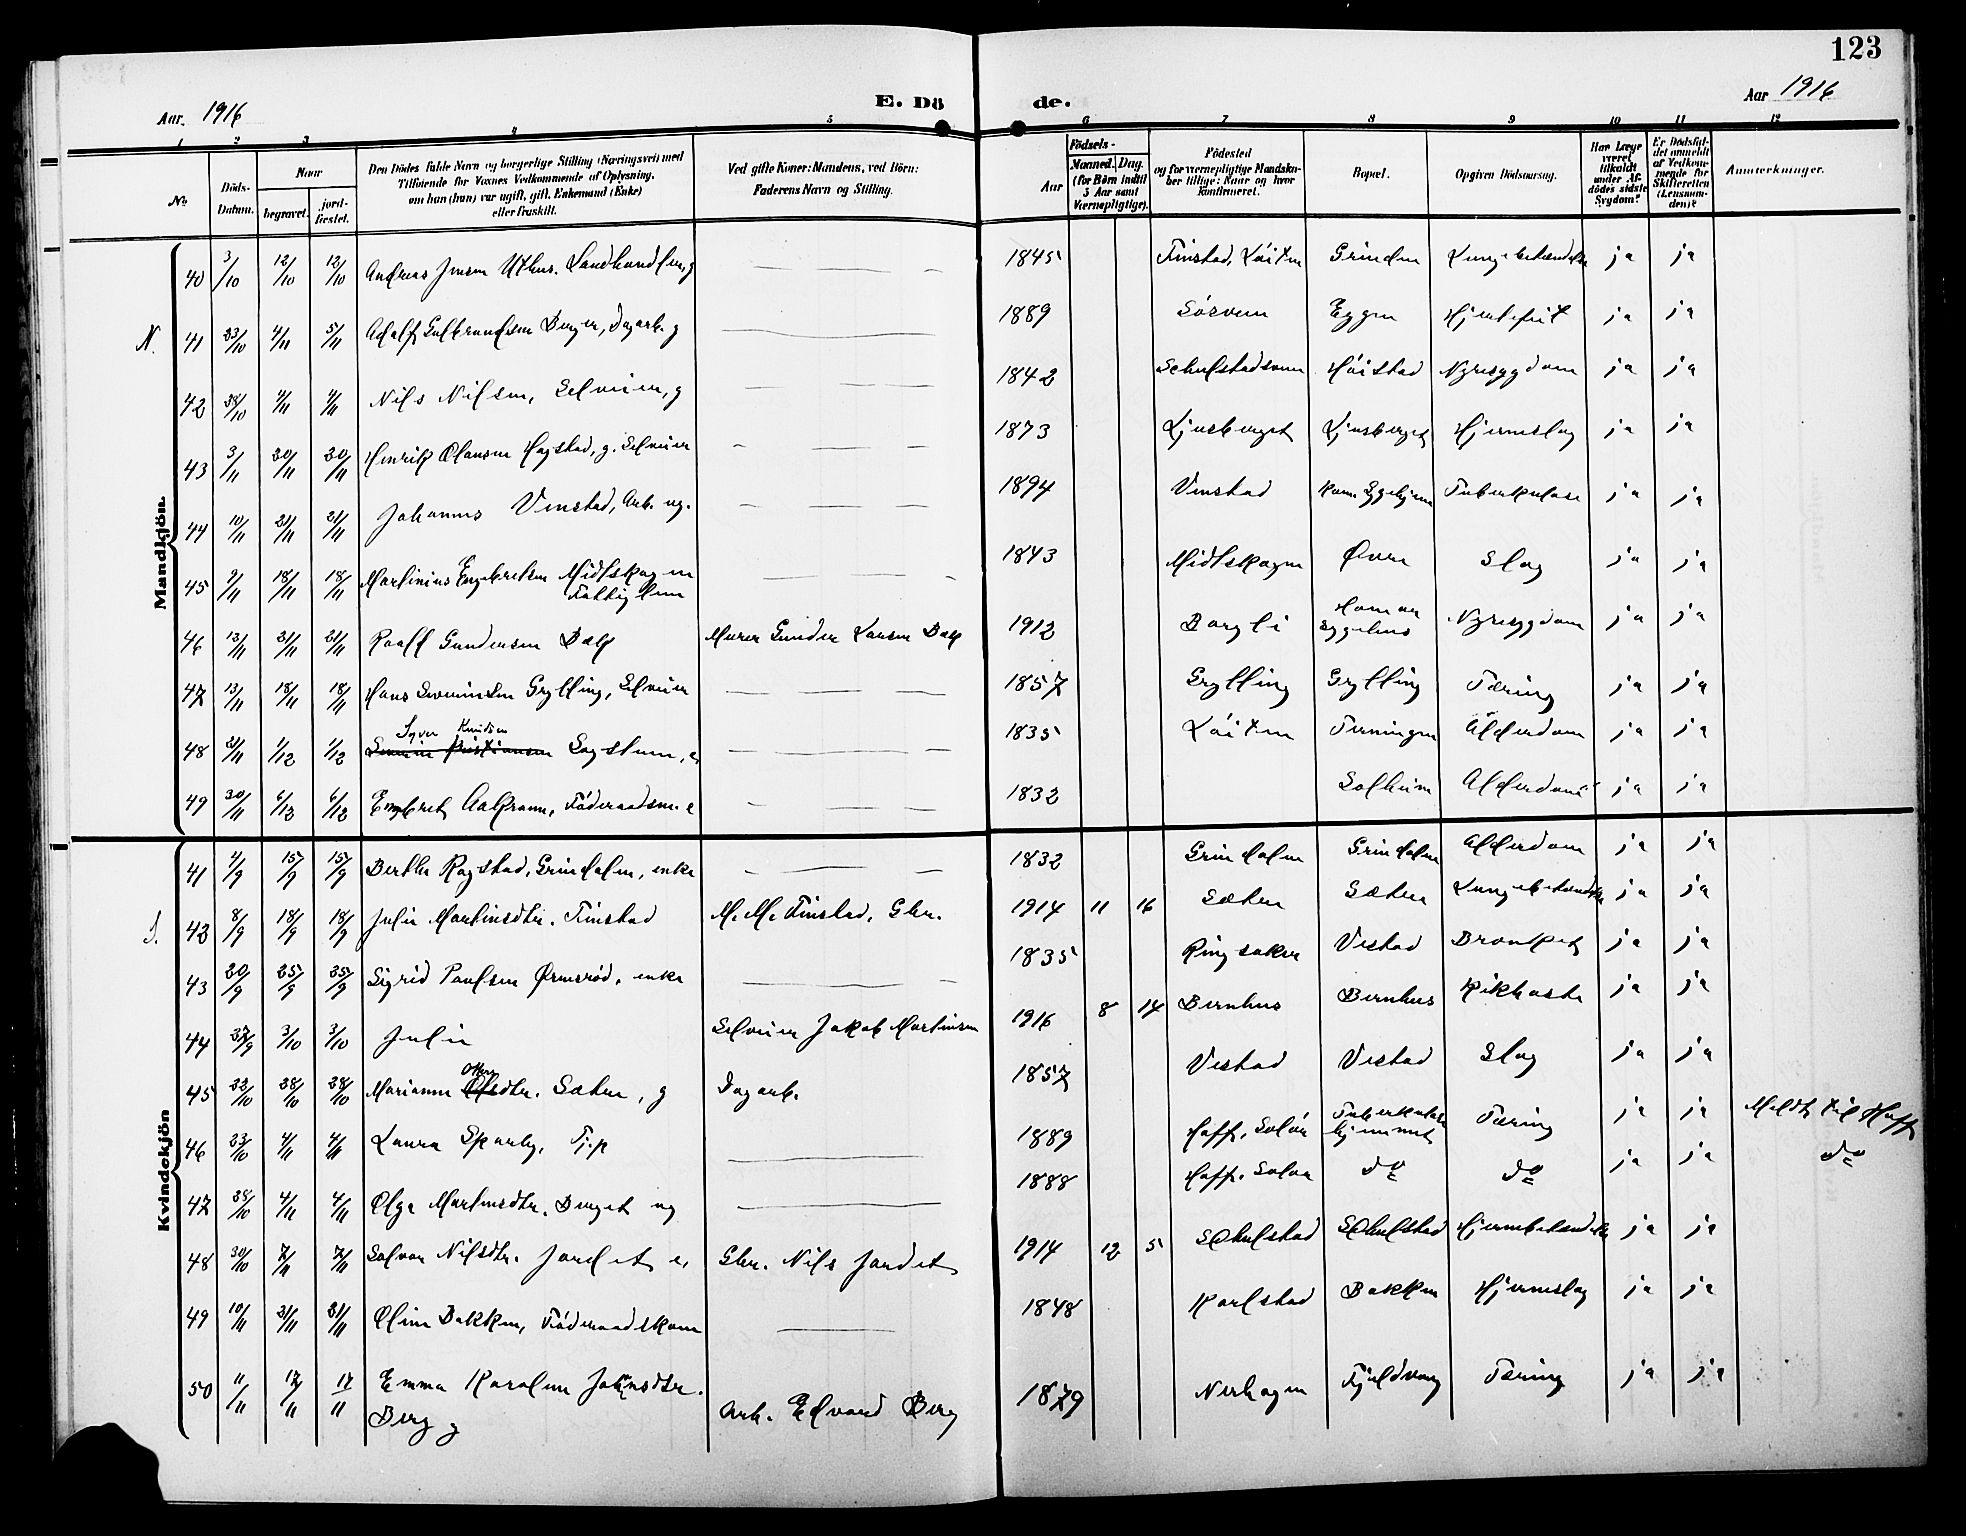 123
Aar. 1916
E. Dö
de.
Aar 1916
1 2 3 4 5 6 7 8 9 10 11 12
No. Döds-Datum. Naar begravet. jord-fæstet. Den Dödes fulde Navn og borgerlige Stilling (Næringsvei) med Tilföiende for Voxnes Vedkommende af Oplysning, om han (hun) var ugift, gift, Enkemand (Enke) eller fraskilt. Ved gifte Koner: Mandens, ved Börn: Faderens Navn og Stilling. Födsels- Aar Maaned. Dag. (for Börn indtil 5 Aar samt Værnepligtige). Födested og for værnepligtige Mandskaber tillige: Naar og hvor konfirmeret. Bopæl. Opgiven Dödsaarsag. Har Læge været tilkaldt under Afdödes sidste Sygdom? Er Dödsfaldet anmeldt af Vedkommende for Skifteretten (Lensmanden)? Anmærkninger.
Mandkjön.
40 3/10 12/10 12/10 Andreas Jensen Uthus. Landhandler, g — — 1845 Finstad, Löiten Grinden Lungebetændelse ja ja
N. 41 23/10 4/11 5/11 Adolf Gulbrandsen Berger, Dagarb. g — — — 1889 Sörsveen Eggen Hjertefeil ja ja
42 28/10 4/11 4/11 Nils Nilsen, Selveier, g — — — 1842 Schulstadsveen Höistad Nyresygdom ja ja
43 3/11 20/11 20/11 Henrik Olausen Hagstad, g. Selveier — — 1873 Ljusberget Ljusberget Hjerneslag ja ja
44 10/11 21/11 21/11 Johannes Vinstad, Arb. ug. — — — 1894 Vinstad Tuberkulose ja ja
45 9/11 18/11 18/11 Martinius Engebretsen Midtskogen — — — 1843 Midtskogen Øvre Slag ja ja
Fattiglem
46 13/11 21/11 21/11 Roalf Gundersen Bæk Murer Gunder Larsen Bæk 1912 Borgli Hamar Sygehus Nyresygdom ja ja
47 13/11 18/11 18/11 Hans Severinsen Grylling, Selveier — — — 1857 Grylling Grylling Tæring ja ja
Syver Knudsen
48 21/11 1/12 1/12 Sagstuen, e. — — — 1835 Löiten Terningen Alderdom ja ja
49 30/11 6/12 6/12 Engebret Aakrann, Föderaadsm. e — — — 1832 Solheim Alderdom ja ja
Kvindekjön
41 4/9 15/9 15/9 Berthe Rogstad, Grindalen, enke — — — 1832 Grindalen Grindalen Alderdom ja ja
S. 42 8/9 18/9 18/9 Julie Martinsdtr. Finstad M. M. Finstad, Gbr. 1914 11 16 Sæter Sæter Lungebetændelse ja ja
43 20/9 25/9 25/9 Sigrid Paulsen Ørmsröd, enke — — 1835 Ringsaker Vestad Bronkit ja ja
44 27/9 3/10 3/10 Julie Selveier Jakob Martinsen 1916 8 14 Bernhus Bernhus Kikhoste ja ja
Otter
45 22/10 28/10 28/10 Marianne dtr. Sæter, g Dagarb. 1857 Vestad Vestad Slag ja ja
46 23/10 4/11 4/11 Laura Sparby, Tj.p — 1889 Hoff, Solör Tuberkulosehjemmet Tæring ja ja Meldt til Hoff
47 28/10 4/11 4/11 Olga Martinsdtr. Berget ug — 1888 Hoff. Solör do do ja ja do
48 30/10 7/11 7/11 Solvor Nilsdtr. Jordet e. Gbr. Nils Jordet 1914 12 5 Schulstad Schulstad Hjernebetændelse ja ja
49 10/11 21/11 21/11 Oline Bakken, Föderaadskone — 1848 Karlstad Bakken Hjerneslag ja ja
50 11/11 17/11 17/11 Emma Karoline Johnsdtr. 1879 Nerhagen Fjeldvang Tæring ja ja
Berg g Arb. Edvard Berg